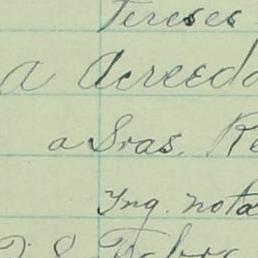 Tereses
a Acreedo
a Sras. Re
Ing. nota